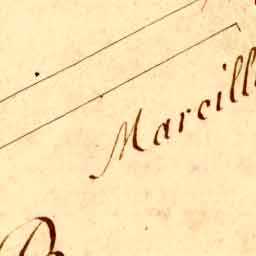 Marcill
B